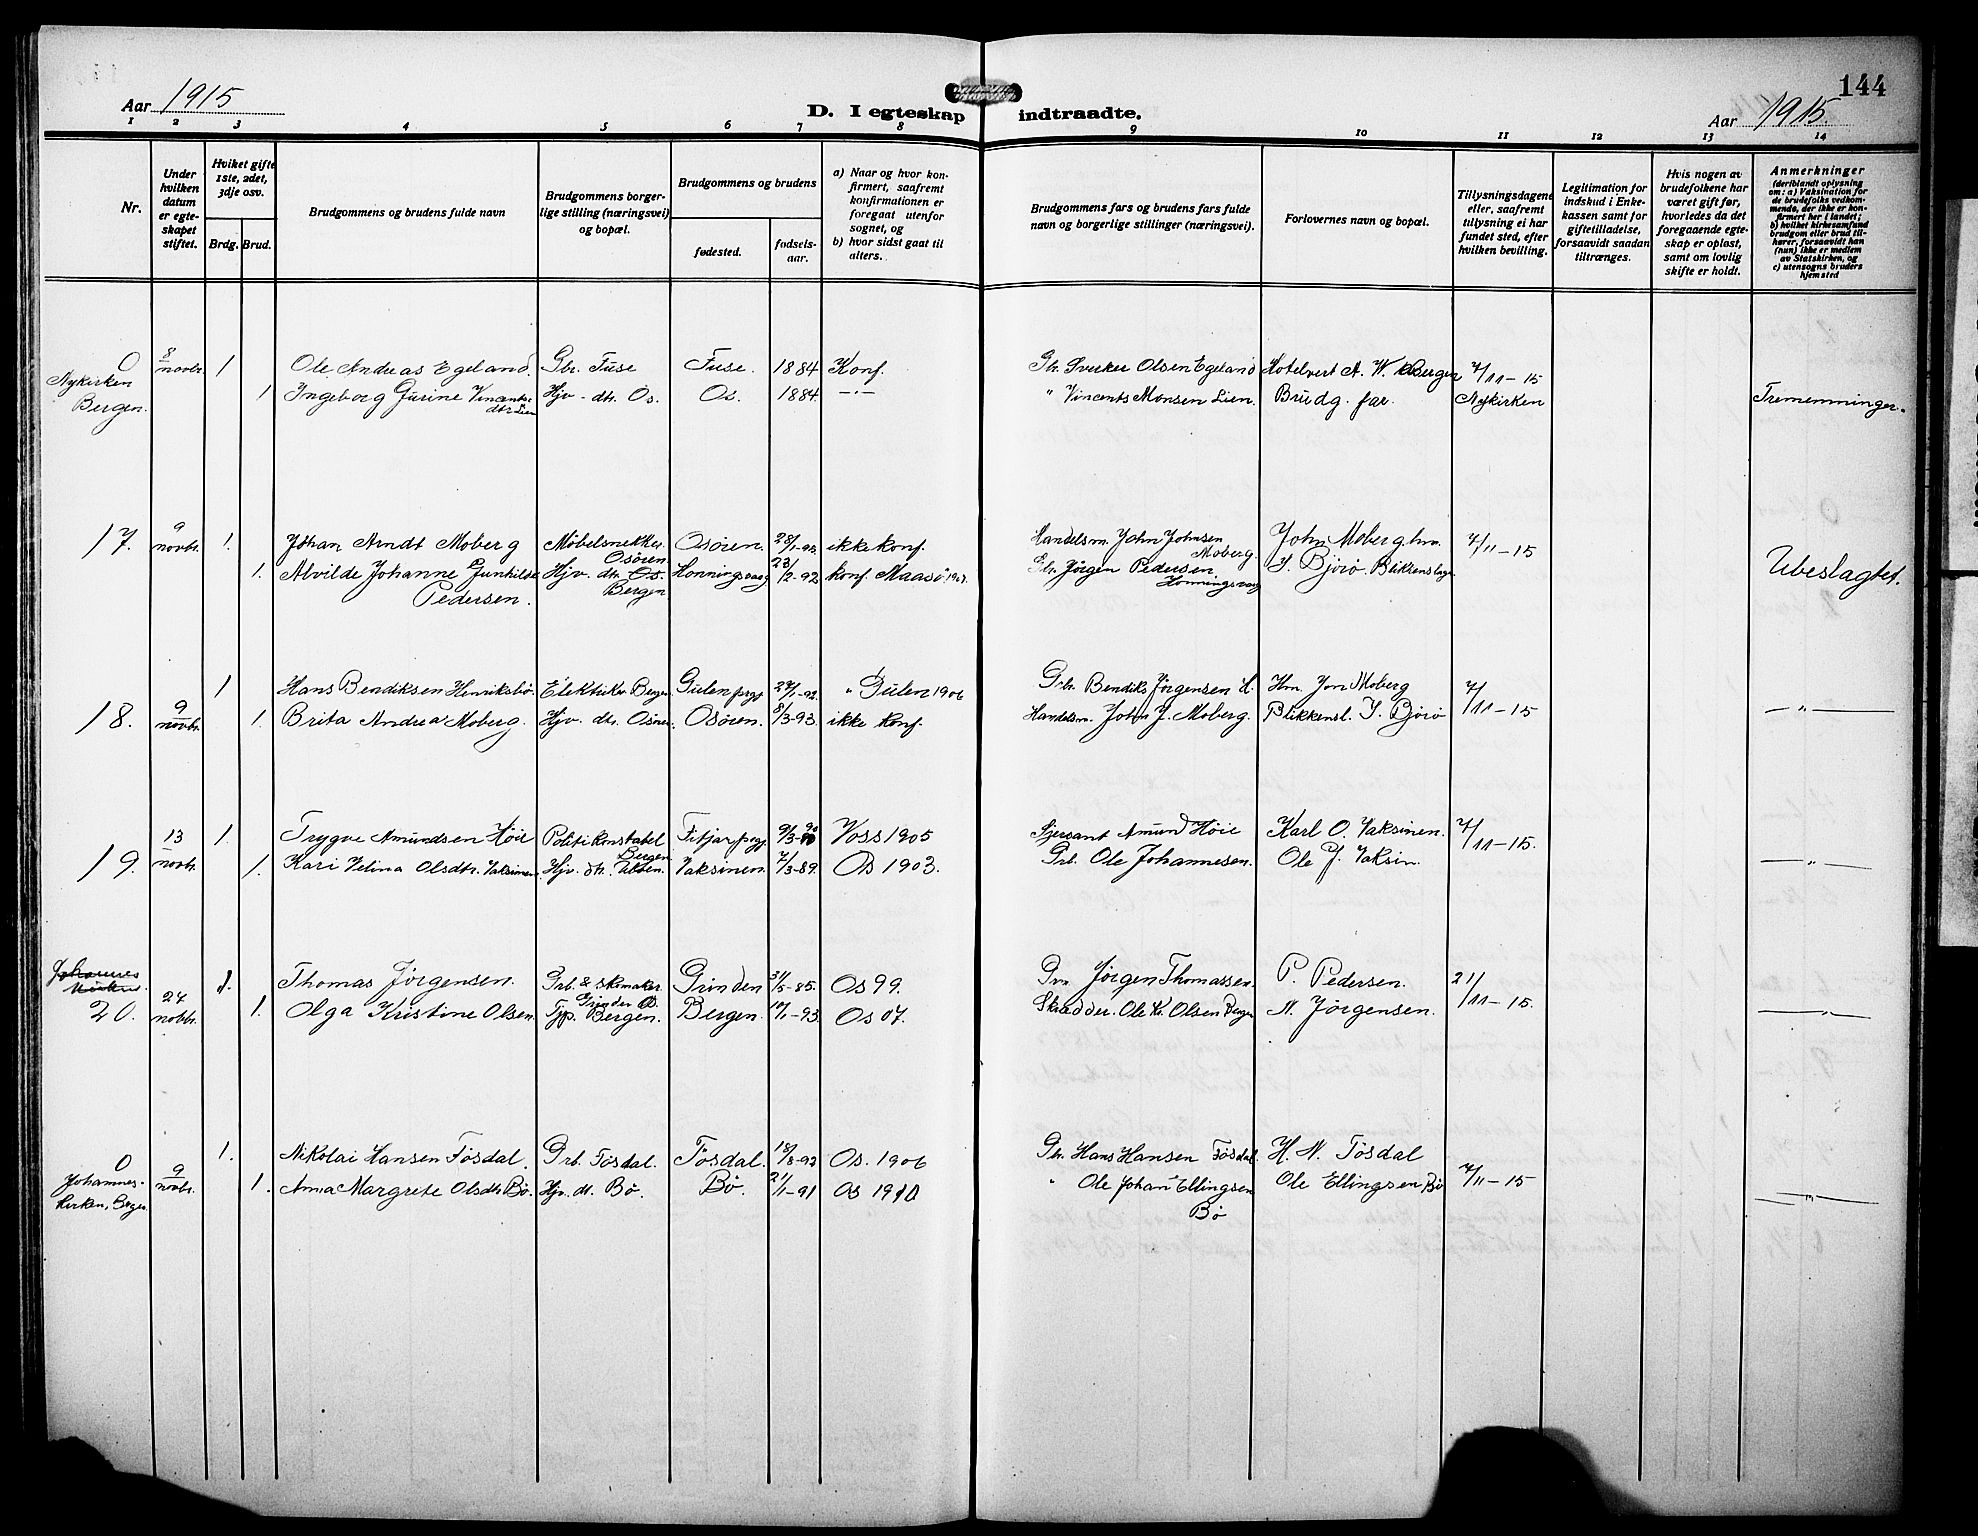 144
Aar 1915
D. I egteskap indtraadte.
Aar 1915.
1 2 3 4 5 6 7 8 9 10 11 12 13 14
Nr.
Under hvilken datum er egteskapet stiftet.
Hviket gifte 1ste, 2det, 3dje osv.
Brdg. Brud.
Brudgommens og brudens fulde navn
Brudgommens borgerlige stilling (næringsvei) og bopæl.
Brudgommens og brudens
fødested.
fødselsaar.
a) Naar og hvor konfirmert, saafremt konfirmationen er foregaat utenfor sognet, og
b) hvor sidst gaat til alters.
Brudgommens fars og brudens fars fulde navn og borgerlige stillinger (næringsvei).
Forlovernes navn og bopæl.
Tillysningsdagene eller, saafremt tillysning ei har fundet sted, efter hvilken bevilling.
Legitimation for indskud i Enkekassen samt for giftetilladelse, forsaavidt saadan tiltrænges.
Hvis nogen av brudefolkene har været gift før, hvorledes da det foregaaende egteskap er opløst, samt om lovlig skifte er holdt.
Anmerkninger
(deriblandt oplysning om: a) Vaksination for de brudefolks vedkommende, der ikke er konfirmert her i landet; b) hvilket kirkesamfund brudgom eller brud tilhører, forsaavidt han (hun) ikke er medlem av Statskirken, og c) utensogns bruders hjemsted
0 8 novbr. 1 Ole Andreas Egeland. Gbr. Fuse Fuse. 1884 Konf. Gbr. Sverker Olsen Egeland Hotelvert A. W. Berger 7/11-15
Nykirken Bergen. 1 Ingeborg Gurine Vincentsdtr Lien Hjv. dtr. Os. Os. 1884 -"- " Vincents Monsen Lien. Brudg. far. Nykirken Tremenninger.
17. 9 novbr. 1. Johan Arndt Moberg Møbelsnekker Osøren Osøren. 28/1-92. ikke konf. Handelsm. John Johnsen Moberg. John Moberg hm. 7/11-15
1. Alvilde Johanne Gunhilde Pedersen. Hjv. dtr. Os. Bergen Honningsvaag 23/2-92 konf. Maasø 1907. Gbr. Jørgen Pedersen Honningsvaag I. Bjørø Blikkenslager Ubeslagtet.
1 Hans Bendiksen Henriksbø. Elektriker Bergen Gulen prgj 27/1-92. " Gulen 1906 Grb. Bendiks Jørgensen H. Hm. Jon Moberg 7/11-15
18. 9 novbr. 1. Brita Andrea Moberg. Hjv. dtr. Osøren. Osøren. 8/3-93. ikke konf. Handelsm. John J. Moberg. Blikkensl. I. Bjørø -"-
13 1. Trygve Amundsen Høie Politikonstabel Bergen Fitjar prgj. 9/3-90 Voss 1905 Sjersant Amund Høie Karl O. Vaksinen. 7/11-15.
19. novbr. 1. Kari Velina Olsdtr. Vaksinen. Hjv. dtr. Vaksinen. 7/3-89. Os 1903. Grb. Ole Johannesen. Ole J. Vaksin -"-
Johannes kirken.
1. Thomas Jørgensen. Grb. & skomaker Grinden Os. Grinden 31/5-85. Os 99. Jørgen Thomassen. P. Pedersen. 21/11-15.
20. 24 novbr. 1. Olga Kristine Olsen. Bergen. Bergen. 10/1-93. Os 07. Skredder. Ole K. Olsen Bergen N. Jørgensen. -"-
0 1. Nikolai Hansen Tøsdal. Grb. Tøsdal. Tøsdal. 18/8-92 Os. 1906 Gbr. Hans Hansen Tøsdal H. N. Tøsdal
Johanneskirken, Bergen 9 novbr. 1. Anna Margrete Olsdtr Bø. Hjv. dt. Bø. Bø. 21/1-91 Os 1910 " Ole Johan Ellingsen Bø Ole Ellingsen Bø 7/11-15 -"-